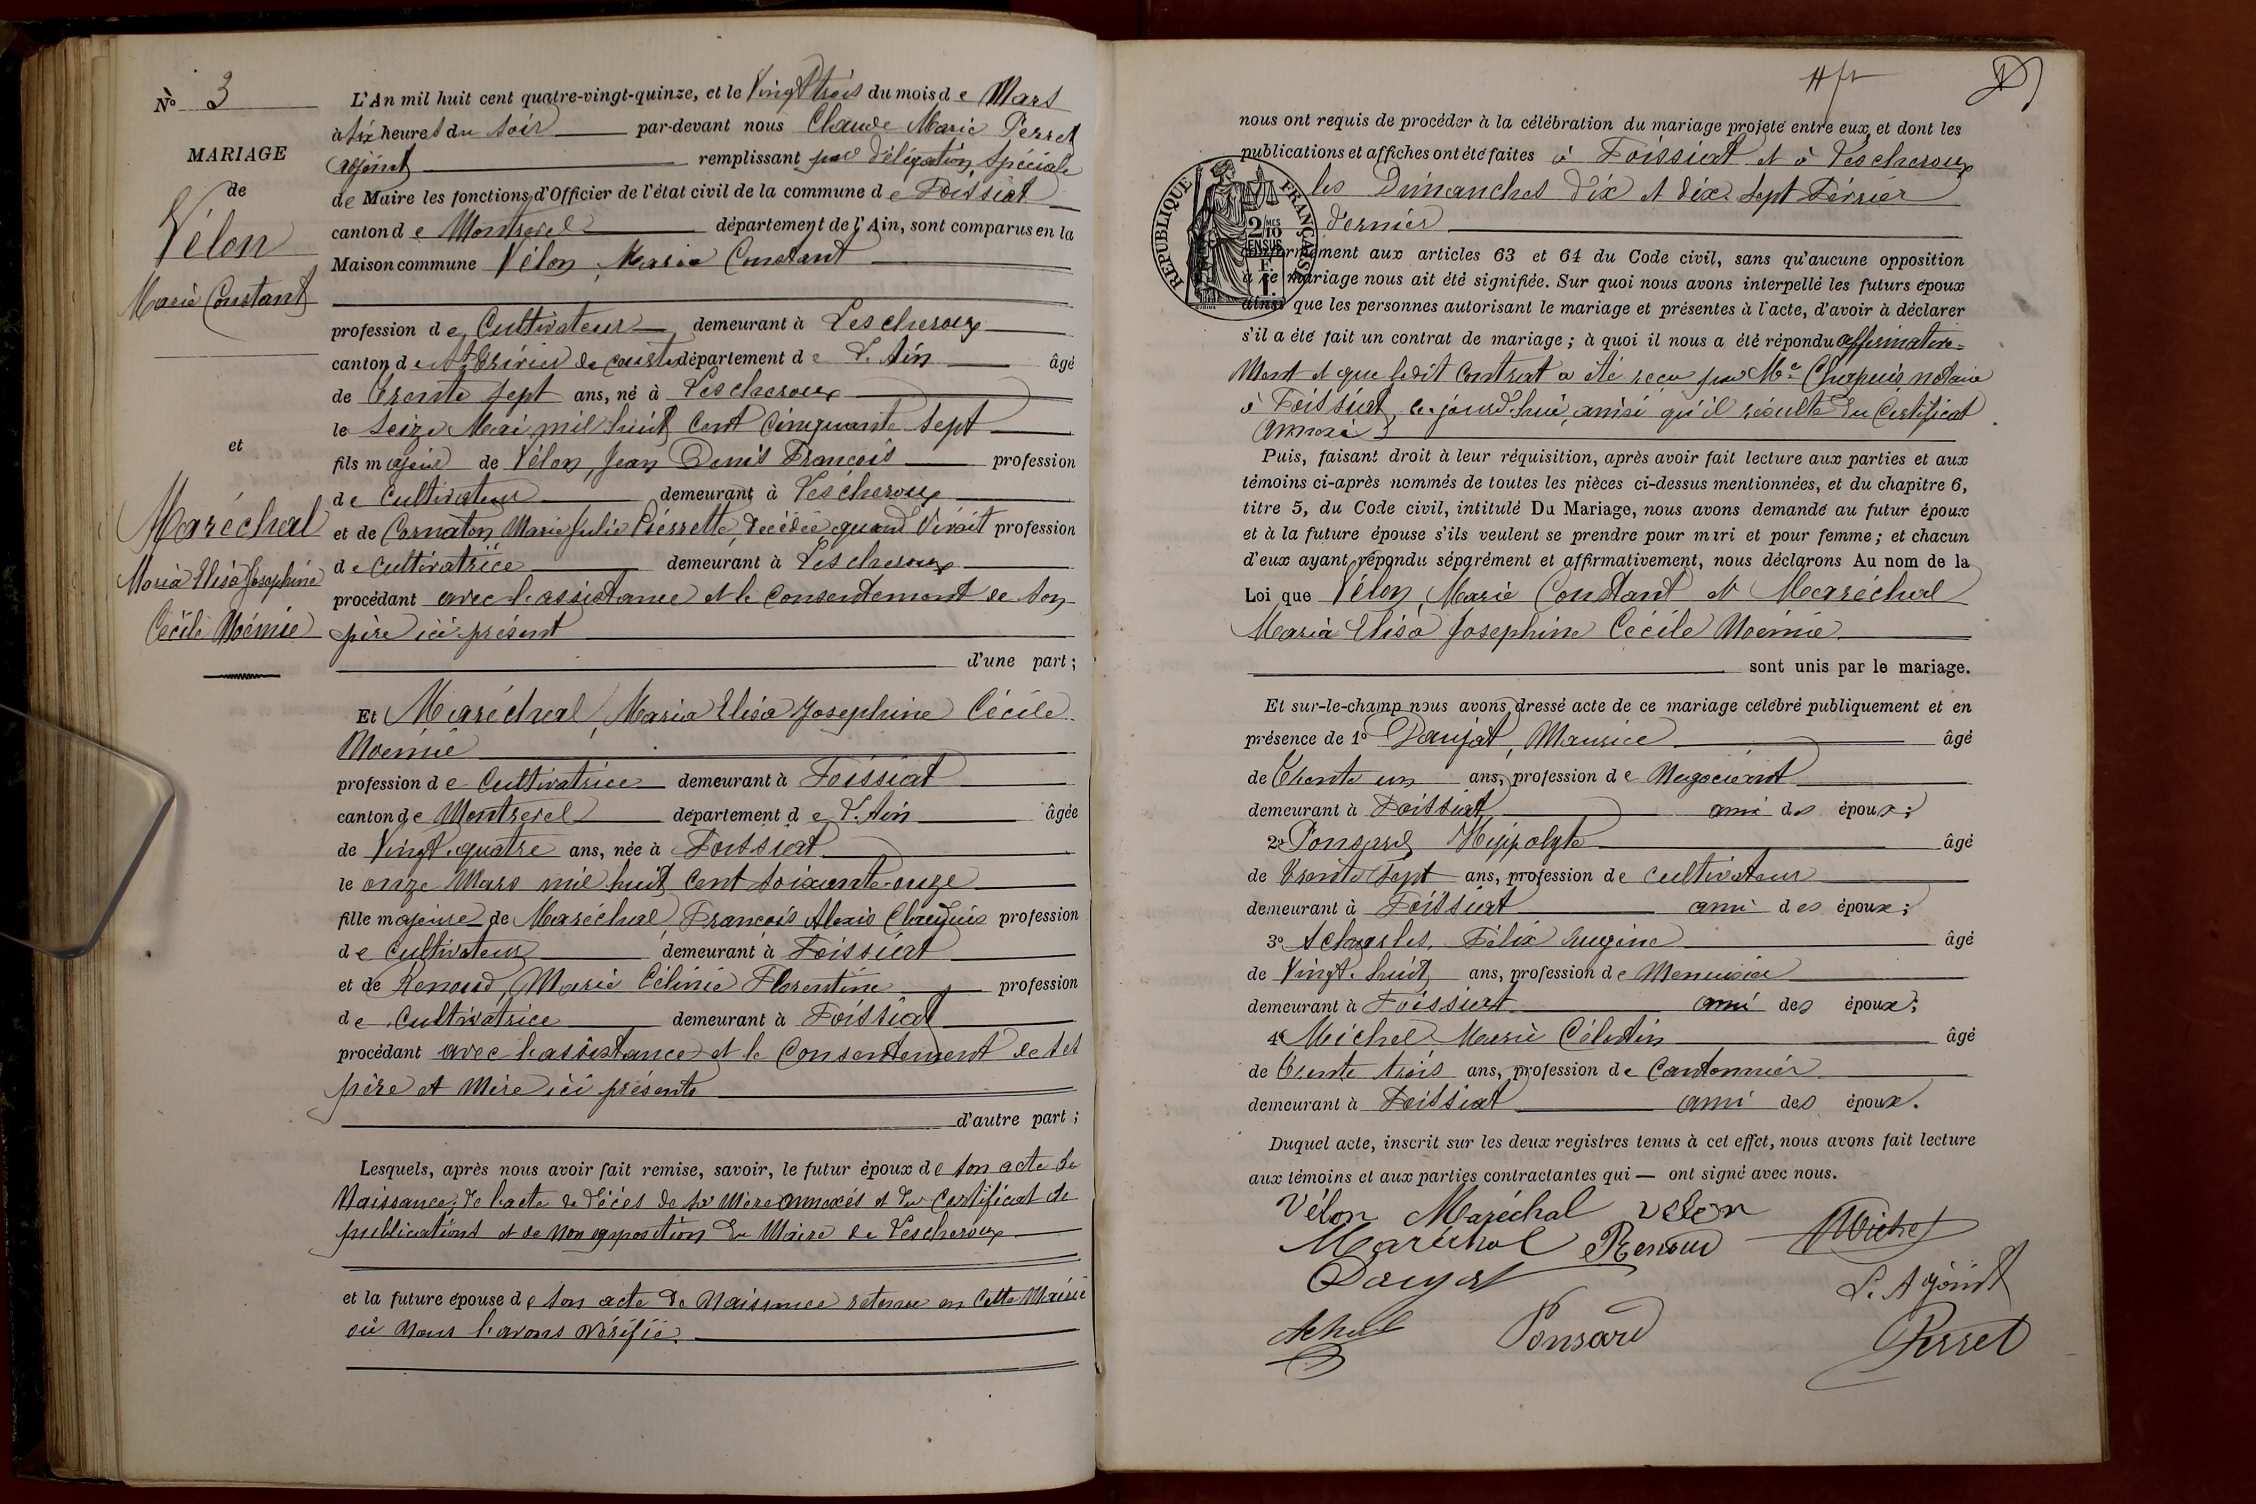 No 3
MARIAGE
de
Vélon
Marie Constant
et
Maréchal
Maria Elisa Josephine
Cécile Noémie
L'An mil huit cent quatre-vingt-quinze, et le Vingt trois du mois de Mars
à six heures du soir par-devant nous Claude Marie Perret
adjoint remplissant par délégation spéciale
de Maire les fonctions d'Officier de l'état civil de la commune de Foissiat
canton de Montrevel département de l'Ain, sont comparus en la
Maison commune Vélon, Marie Constant
profession de Cultivateur demeurant à Lescheroux
canton de St Trivier de Courtes département de L'Ain âgé
de Trente sept ans, né à Lescheroux
le seize Mai mil huit cent cinquante sept
fils majeur de Vélon, Jean Denis François profession
de cultivateur demeurant à Lescheroux
et de Cornaton Marie Julie Pierrette, décédée quand vivait profession
de cultivatrice demeurant à Lescheroux
procédant avec l'assistance et le consentement de son
père ici présent
d'une part;
Et Maréchal, Maria Elisa Josephine Cécile
Noémie
profession de Cultivatrice demeurant à Foissiat
canton de Montrevel département de L'Ain âgée
de Vingt-quatre ans, née à Foissiat
le onze Mars mil huit cent soixante-onze
fille majeure de Maréchal, François Alexis profession
de cultivateur demeurant à Foissiat
et de Renoud, Marie Célinie Florentine profession
de Cultivatrice demeurant à Foissiat
procédant avec l'assistance et le consentement de ses
père et mère ici présents
d'autre part;
Lesquels, après nous avoir fait remise, savoir, le futur époux de son acte de
Naissance, de l'acte de décès de sa mère annexés et du certificat de
publications et de non opposition du Maire de Lescheroux
et la future épouse de son acte de Naissance retenue en cette Mairie
où nous l'avons vérifié.
nous ont requis de procéder à la célébration du mariage projeté entre eux, et dont les
publications et affiches ont été faites à Foissiat et à Lescheroux
les Dimanches dix et dix-sept Février
dernier
RÉPUBLIQUE FRANÇAISE
2/10 EN SUS
1 F.
conformément aux articles 63 et 64 du Code civil, sans qu'aucune opposition
à ce mariage nous ait été signifiée. Sur quoi nous avons interpellé les futurs époux
ainsi que les personnes autorisant le mariage et présentes à l'acte, d'avoir à déclarer
s'il a été fait un contrat de mariage; à quoi il nous a été répondu affirmative=
ment et que ledit contrat a été reçu par Me Chapuis notaire
à Foissiat, ce jourd'hui, ainsi qu'il résulte du Certificat
annexé
Puis, faisant droit à leur réquisition, après avoir fait lecture aux parties et aux
témoins ci-après nommés de toutes les pièces ci-dessus mentionnées, et du chapitre 6,
titre 5, du Code civil, intitulé Du Mariage, nous avons demandé au futur époux
et à la future épouse s'ils veulent se prendre pour mari et pour femme; et chacun
d'eux ayant répondu séparément et affirmativement, nous déclarons Au nom de la
Loi que Vélon, Marie Constant et Maréchal
Maria Elisa Josephine Cécile Noémie
sont unis par le mariage.
Et sur-le-champ nous avons dressé acte de ce mariage célébré publiquement et en
présence de 1o Daujat, Maurice âgé
de Trente un ans, profession de Negociant
demeurant à Foissiat ami des époux;
2o Ponsard Hippolyte âgé
de Trente sept ans, profession de cultivateur
demeurant à Foissiat ami des époux;
3o Félix Eugène âgé
de Vingt-huit ans, profession de Menuisier
demeurant à Foissiat ami des époux;
4o Michel Marie Célestin âgé
de Trente trois ans, profession de Cantonnier
demeurant à Foissiat ami des époux.
Duquel acte, inscrit sur les deux registres tenus à cet effet, nous avons fait lecture
aux témoins et aux parties contractantes qui — ont signé avec nous.
Vélon Maréchal velon
Maréchal Renoud Michel
Daujat L'Adjoint
Ponsard Perret